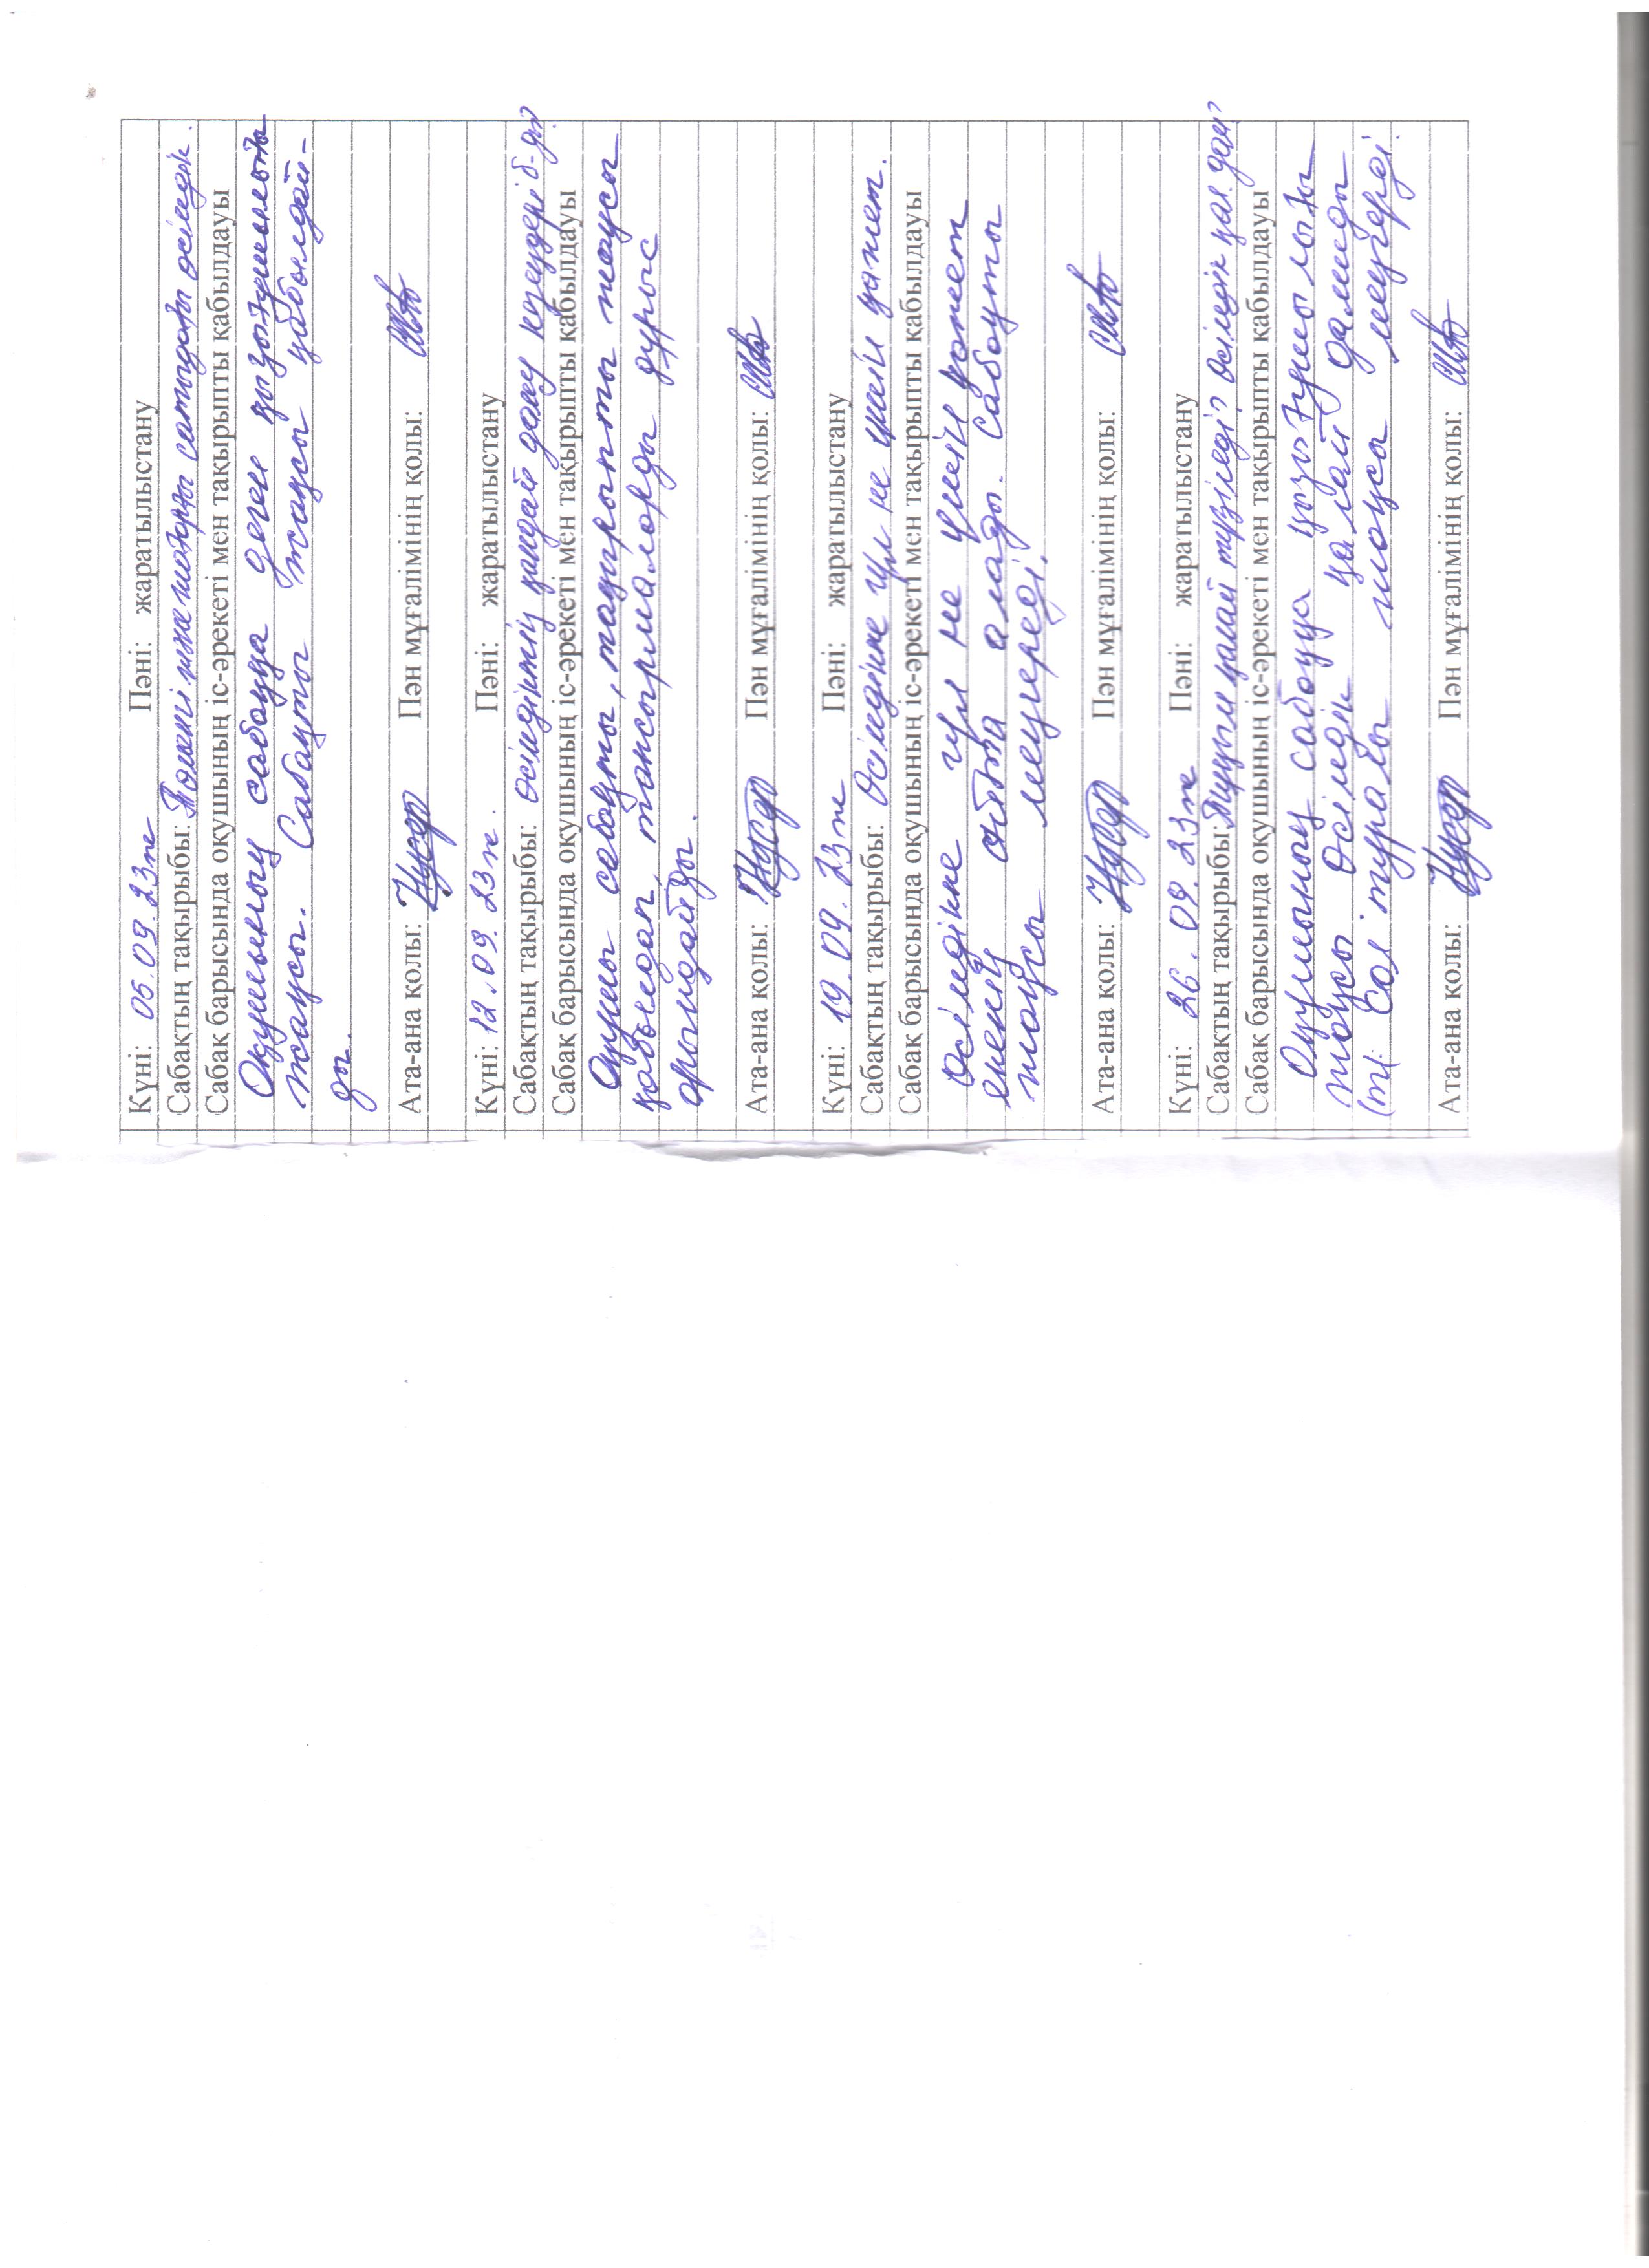 Күні: 05.09.23ж Пәні: жаратылыстану
Сабақтың тақырыбы: Төменгі және жоғарғы сатыдағы өсімдік.
Сабақ барысында оқушының іс-әрекеті мен тақырыпты қабылдауы
Оқушының сабаққа деген қызығушылығы
жақсы. Сабақты жақсы қабылдай-
ды.
Ата-ана қолы: Пән мұғалімінің қолы:
Күні: 12.09.23ж. Пәні: жаратылыстану
Сабақтың тақырыбы: Өсімдіктің қандай даму кезеңдері б-ды?
Сабақ барысында оқушының іс-әрекеті мен тақырыпты қабылдауы
Оқушы сабақты, тақырыпты жақсы
қабылдап, тапсырмаларды дұрыс
орындайды.
Ата-ана қолы: Пән мұғалімінің қолы:
Күні: 19.09.23ж Пәні: жаратылыстану
Сабақтың тақырыбы: Өсімдікке гүл не үшін қажет.
Сабақ барысында оқушының іс-әрекеті мен тақырыпты қабылдауы
Өсімдікке гүл не үшін қажет
екенін айта алады. Сабақты
жақсы меңгереді.
Ата-ана қолы: Пән мұғалімінің қолы:
Күні: 26.09.23ж Пәні: жаратылыстану
Сабақтың тақырыбы: Тұқым қалай түзіледі? Өсімдік қал. дам?
Сабақ барысында оқушының іс-әрекеті мен тақырыпты қабылдауы
Оқушының сабаққа қызығушылығы
жақсы Өсімдік қалай дамиды
сол туралы жақсы меңгерді.
Ата-ана қолы: Пән мұғалімінің қолы: